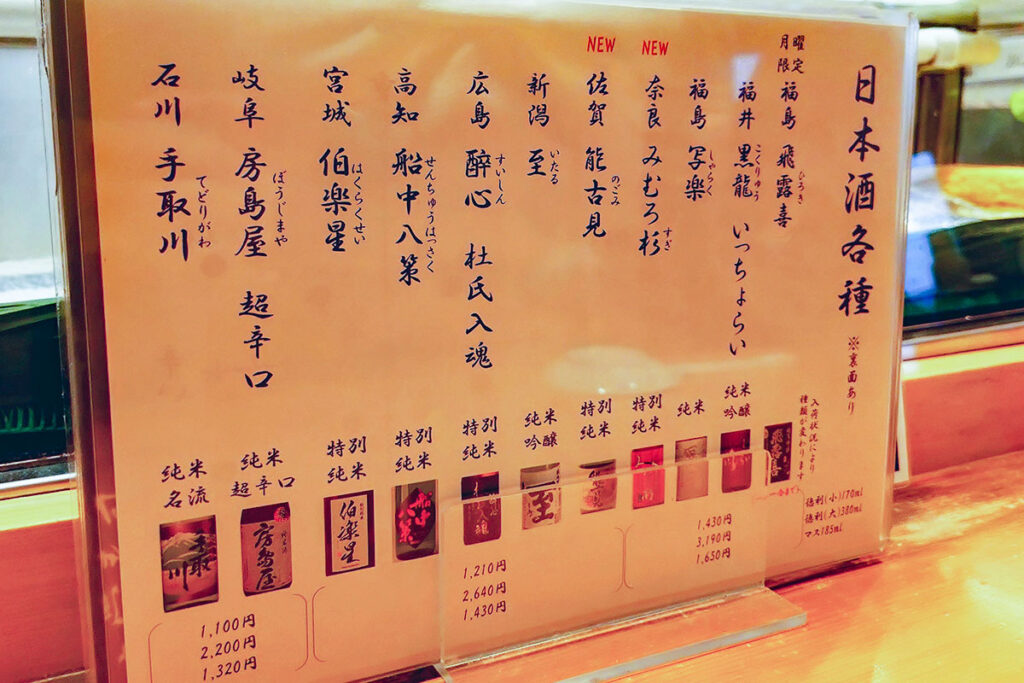 日本酒各種 ※裏面あり
入荷状況により
種類が変わります
徳利(小)170ml
徳利(大)380ml
マス185ml
月曜
限定
福島 飛露喜 ひろき
福井 黒龍 こくりゅう いっちょらい
純米
吟醸
福島 写楽 しゃらく
純米
NEW
奈良 みむろ杉 すぎ
特別
純米
NEW
佐賀 能古見 のごみ
特別
純米
新潟 至 いたる
純米
吟醸
至
広島 醉心 すいしん 杜氏入魂
特別
純米
高知 船中八策 せんちゅうはっさく
特別
純米
船中八策
宮城 伯楽星 はくらくせい
特別
純米
伯楽星
岐阜 房島屋 ぼうじまや 超辛口
純米
超辛口
房島屋
石川 手取川 てどりがわ
純米
名流
手取川
1,430円
3,190円
1,650円
1,210円
2,640円
1,430円
1,100円
2,200円
1,320円